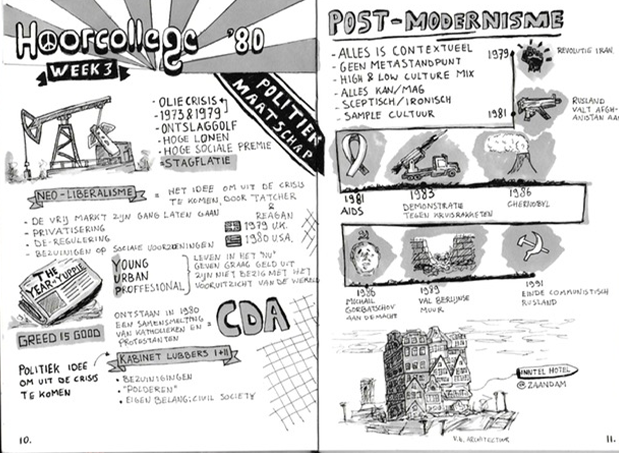 Hoorcollege '80
WEEK 3
POLITIEK
MAATSCHAP.
- OLIECRISIS
- 1973 & 1979
- ONTSLAGGOLF
- HOGE LONEN
- HOGE SOCIALE PREMIE
= STAGFLATIE
NEO-LIBERALISME = HET IDEE OM UIT DE CRISIS
TE KOMEN, DOOR TATCHER
& REAGAN
- DE VRIJ MARKT ZIJN GANG LATEN GAAN
- PRIVATISERING
- DE-REGULERING
- BEZUINIGEN OP SOCIALE VOORZIENINGEN
1979 U.K.
1980 U.S.A.
THE YEAR OF YUPPIE
GREED IS GOOD
YOUNG
URBAN
PROFFESIONAL
LEVEN IN HET "NU"
GEVEN GRAAG GELD UIT
ZIJN NIET BEZIG MET HET
VOORUITZICHT VAN DE WERELD
ONTSTAAN IN 1980
EEN SAMENSMELTING
VAN KATHOLIEKEN EN
PROTESTANTEN
= CDA
POLITIEK IDEE
OM UIT DE CRISIS
TE KOMEN
KABINET LUBBERS I+II
- BEZUINIGINGEN
- "POLDEREN"
- EIGEN BELANG: CIVIL SOCIETY
10.
POST-MODERNISME
- ALLES IS CONTEXTUEEL
- GEEN METASTANDPUNT
- HIGH & LOW CULTURE MIX
- ALLES KAN/MAG
- SCEPTISCH/IRONISCH
- SAMPLE CULTUUR
1979
REVOLUTIE IRAN
1981
RUSLAND
VALT AFGH-
ANISTAN AAN
1981
AIDS
1983
DEMONSTRATIE
TEGEN KRUISRAKETTEN
1986
CHERNOBYL
1986
MICHAIL
GORBATSCHOV
AAN DE MACHT
1989
VAL BERLIJNSE
MUUR
1991
EINDE COMMUNISTISCH
RUSLAND
INNTEL HOTEL
@ ZAANDAM
V.B. ARCHITECTUUR
11.